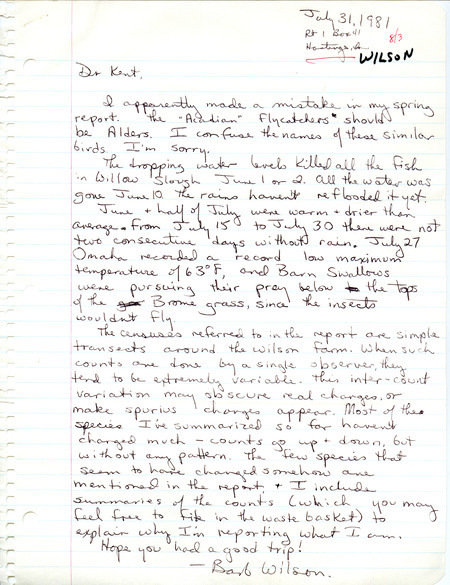 July 31, 1981
Rt 1 Box 41
8/3
Hastings, Ia
WILSON
Dr Kent,
I apparently made a mistake in my spring
report. The "Acadian" Flycatchers" should
be Alders. I confuse the names of these similar
birds. I'm sorry.
The dropping water levels killed all the fish
in Willow Slough June 1 or 2. All the water was
gone June 10. The rains haven't reflooded it yet.
June + half of July were warm + drier than
average. From July 15 to July 30 there were not
two consecutive days without rain. July 27
Omaha recorded a record low maximum
temperature of 63°F, and Barn Swallows
were pursuing their prey below the tops
of the Brome grass, since the insects
wouldn't fly.
The censuses referred to in the report are simple
transects around the Wilson farm. When such
counts are done by a single observer, they
tend to be extremely variable. This inter-count
variation may obscure real changes, or
make spurius changes appear. Most of the
species I've summarized so far haven't
changed much - counts go up + down, but
without any pattern. The few species that
seem to have changed somehow are
mentioned in the report + I include
summaries of the counts (which you may
feel free to file in the waste basket) to
explain why I'm reporting what I am.
Hope you had a good trip!
- Barb Wilson.